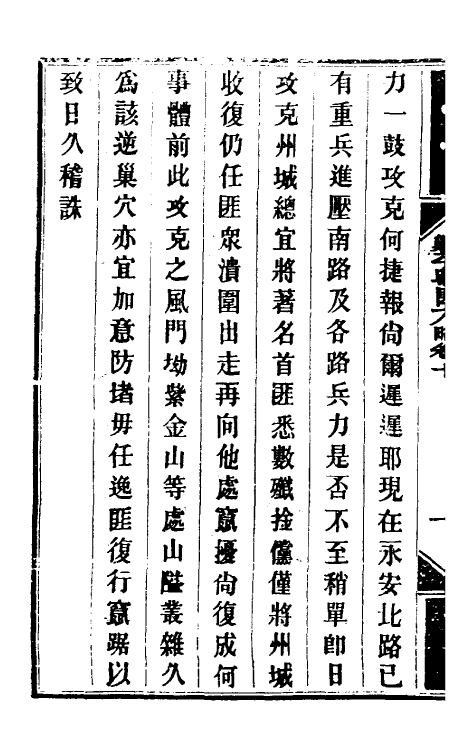 力一鼓攻克何捷報尙爾遲遲耶現在永安北路已
有重兵進壓南路及各路兵力是否不至稍單卽日
攻克州城總宜將著名首匪悉數殲捦儻僅將州城
收復仍任匪衆潰圍出走再向他處竄擾尙復成何
事體前此攻克之風門坳紫金山等處山隘叢雜久
爲該逆巢穴亦宜加意防堵毋任逸匪復行竄踞以
致日久稽誅